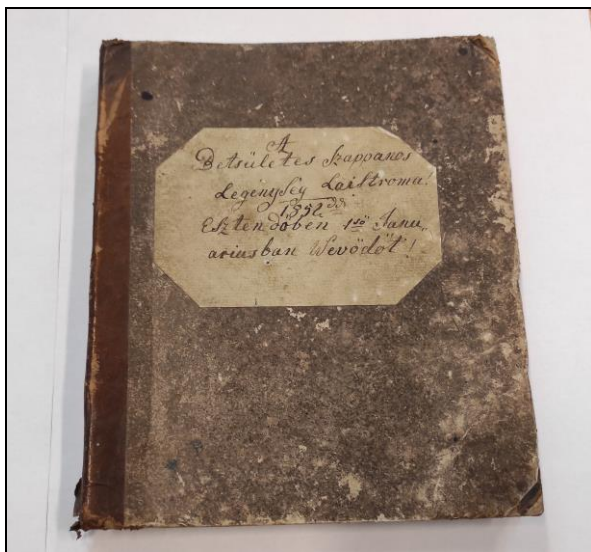 A
Betsületes Szappanos
Legénység Laistroma!
1852dik
Esztendőben 1ső Janu„
ariusban Wevődöt!